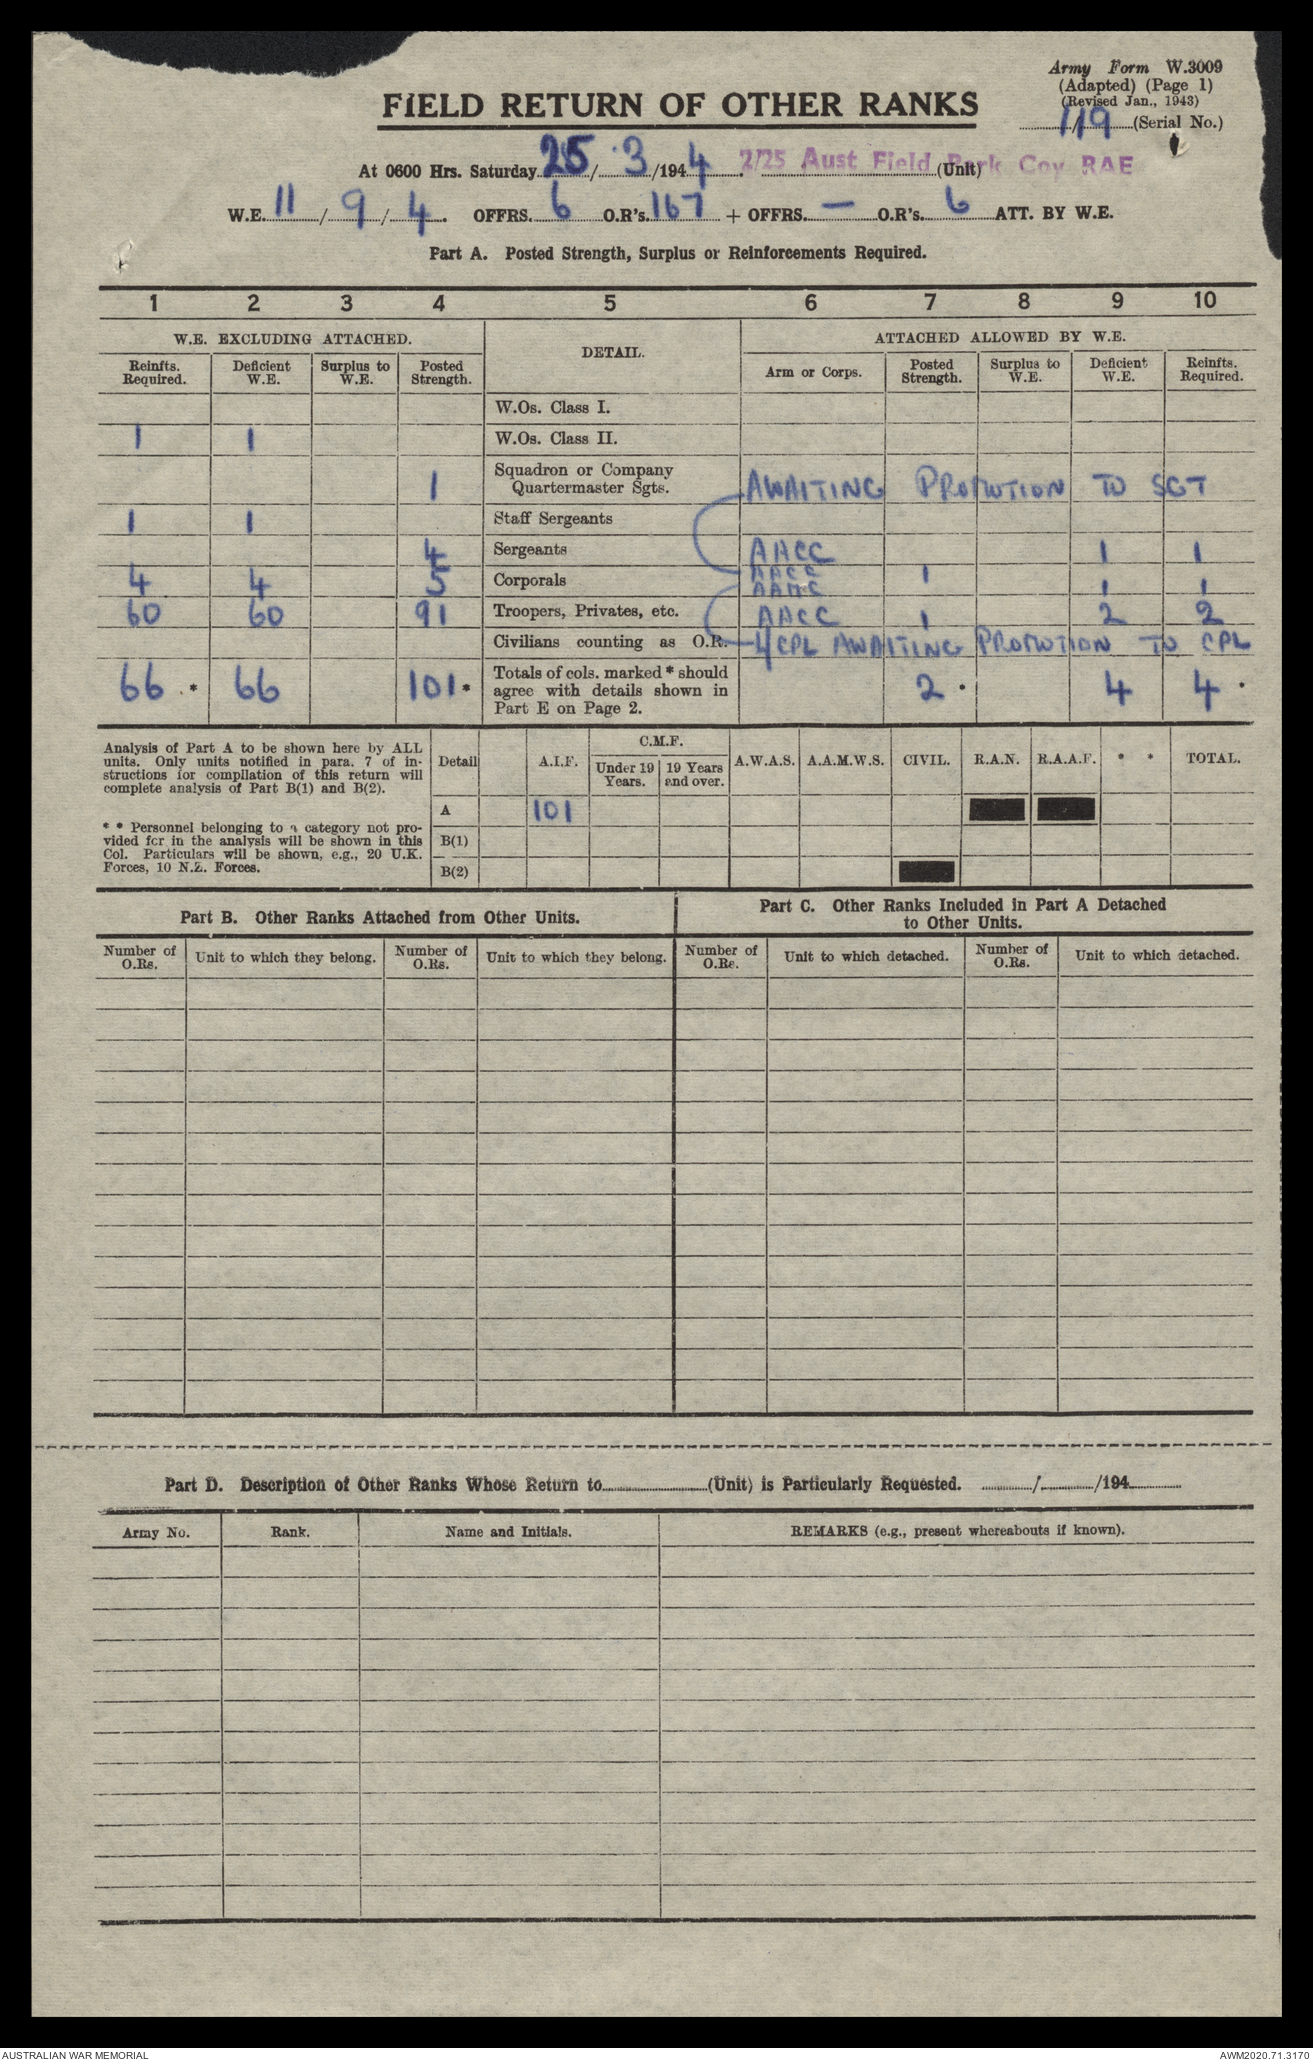 Army Form W.3009
(Adapted) (Page 1)
(Revised Jan., 1943)
1/19 (Serial No.)
FIELD RETURN OF OTHER RANKS
At 0600 Hrs. Saturday 25/3/1944. 2/25 Aust Field Park Coy RAE (Unit)
W.E. 11/9/4. OFFRS. 6 O.R's. 167 + OFFRS. — O.R's. 6 ATT. BY W.E.
Part A. Posted Strength, Surplus or Reinforcements Required.
1 2 3 4 5 6 7 8 9 10
W.E. EXCLUDING ATTACHED. DETAIL. ATTACHED ALLOWED BY W.E.
Reinfts. Required. Deficient W.E. Surplus to W.E. Posted Strength. Arm or Corps. Posted Strength. Surplus to W.E. Deficient W.E. Reinfts. Required.
W.Os. Class I.
1 1 W.Os. Class II.
1 Squadron or Company Quartermaster Sgts. AWAITING PROMOTION TO SGT
1 1 Staff Sergeants
4 Sergeants AACC 1 1
4 4 5 Corporals AACC 1
AAMC 1 1
60 60 91 Troopers, Privates, etc. AACC 1 2 2
Civilians counting as O.R. L/CPL AWAITING PROMOTION TO CPL
66 .* 66 101 * Totals of cols. marked * should agree with details shown in Part E on Page 2. 2 • 4 4 •
Analysis of Part A to be shown here by ALL
units. Only units notified in para. 7 of in-
structions for compilation of this return will
complete analysis of Part B(1) and B(2).
* * Personnel belonging to a category not pro-
vided for in the analysis will be shown in this
Col. Particulars will be shown, e.g., 20 U.K.
Forces, 10 N.Z. Forces.
Detail A.I.F. C.M.F. Under 19 Years. 19 Years and over. A.W.A.S. A.A.M.W.S. CIVIL. R.A.N. R.A.A.F. * * TOTAL.
A 101
B(1)
B(2)
Part B. Other Ranks Attached from Other Units.
Part C. Other Ranks Included in Part A Detached
to Other Units.
Number of O.Rs. Unit to which they belong. Number of O.Rs. Unit to which they belong. Number of O.Rs. Unit to which detached. Number of O.Rs. Unit to which detached.
Part D. Description of Other Ranks Whose Return to (Unit) is Particularly Requested. / /194
Army No. Rank. Name and Initials. REMARKS (e.g., present whereabouts if known).
AUSTRALIAN WAR MEMORIAL AWM2020.71.3170